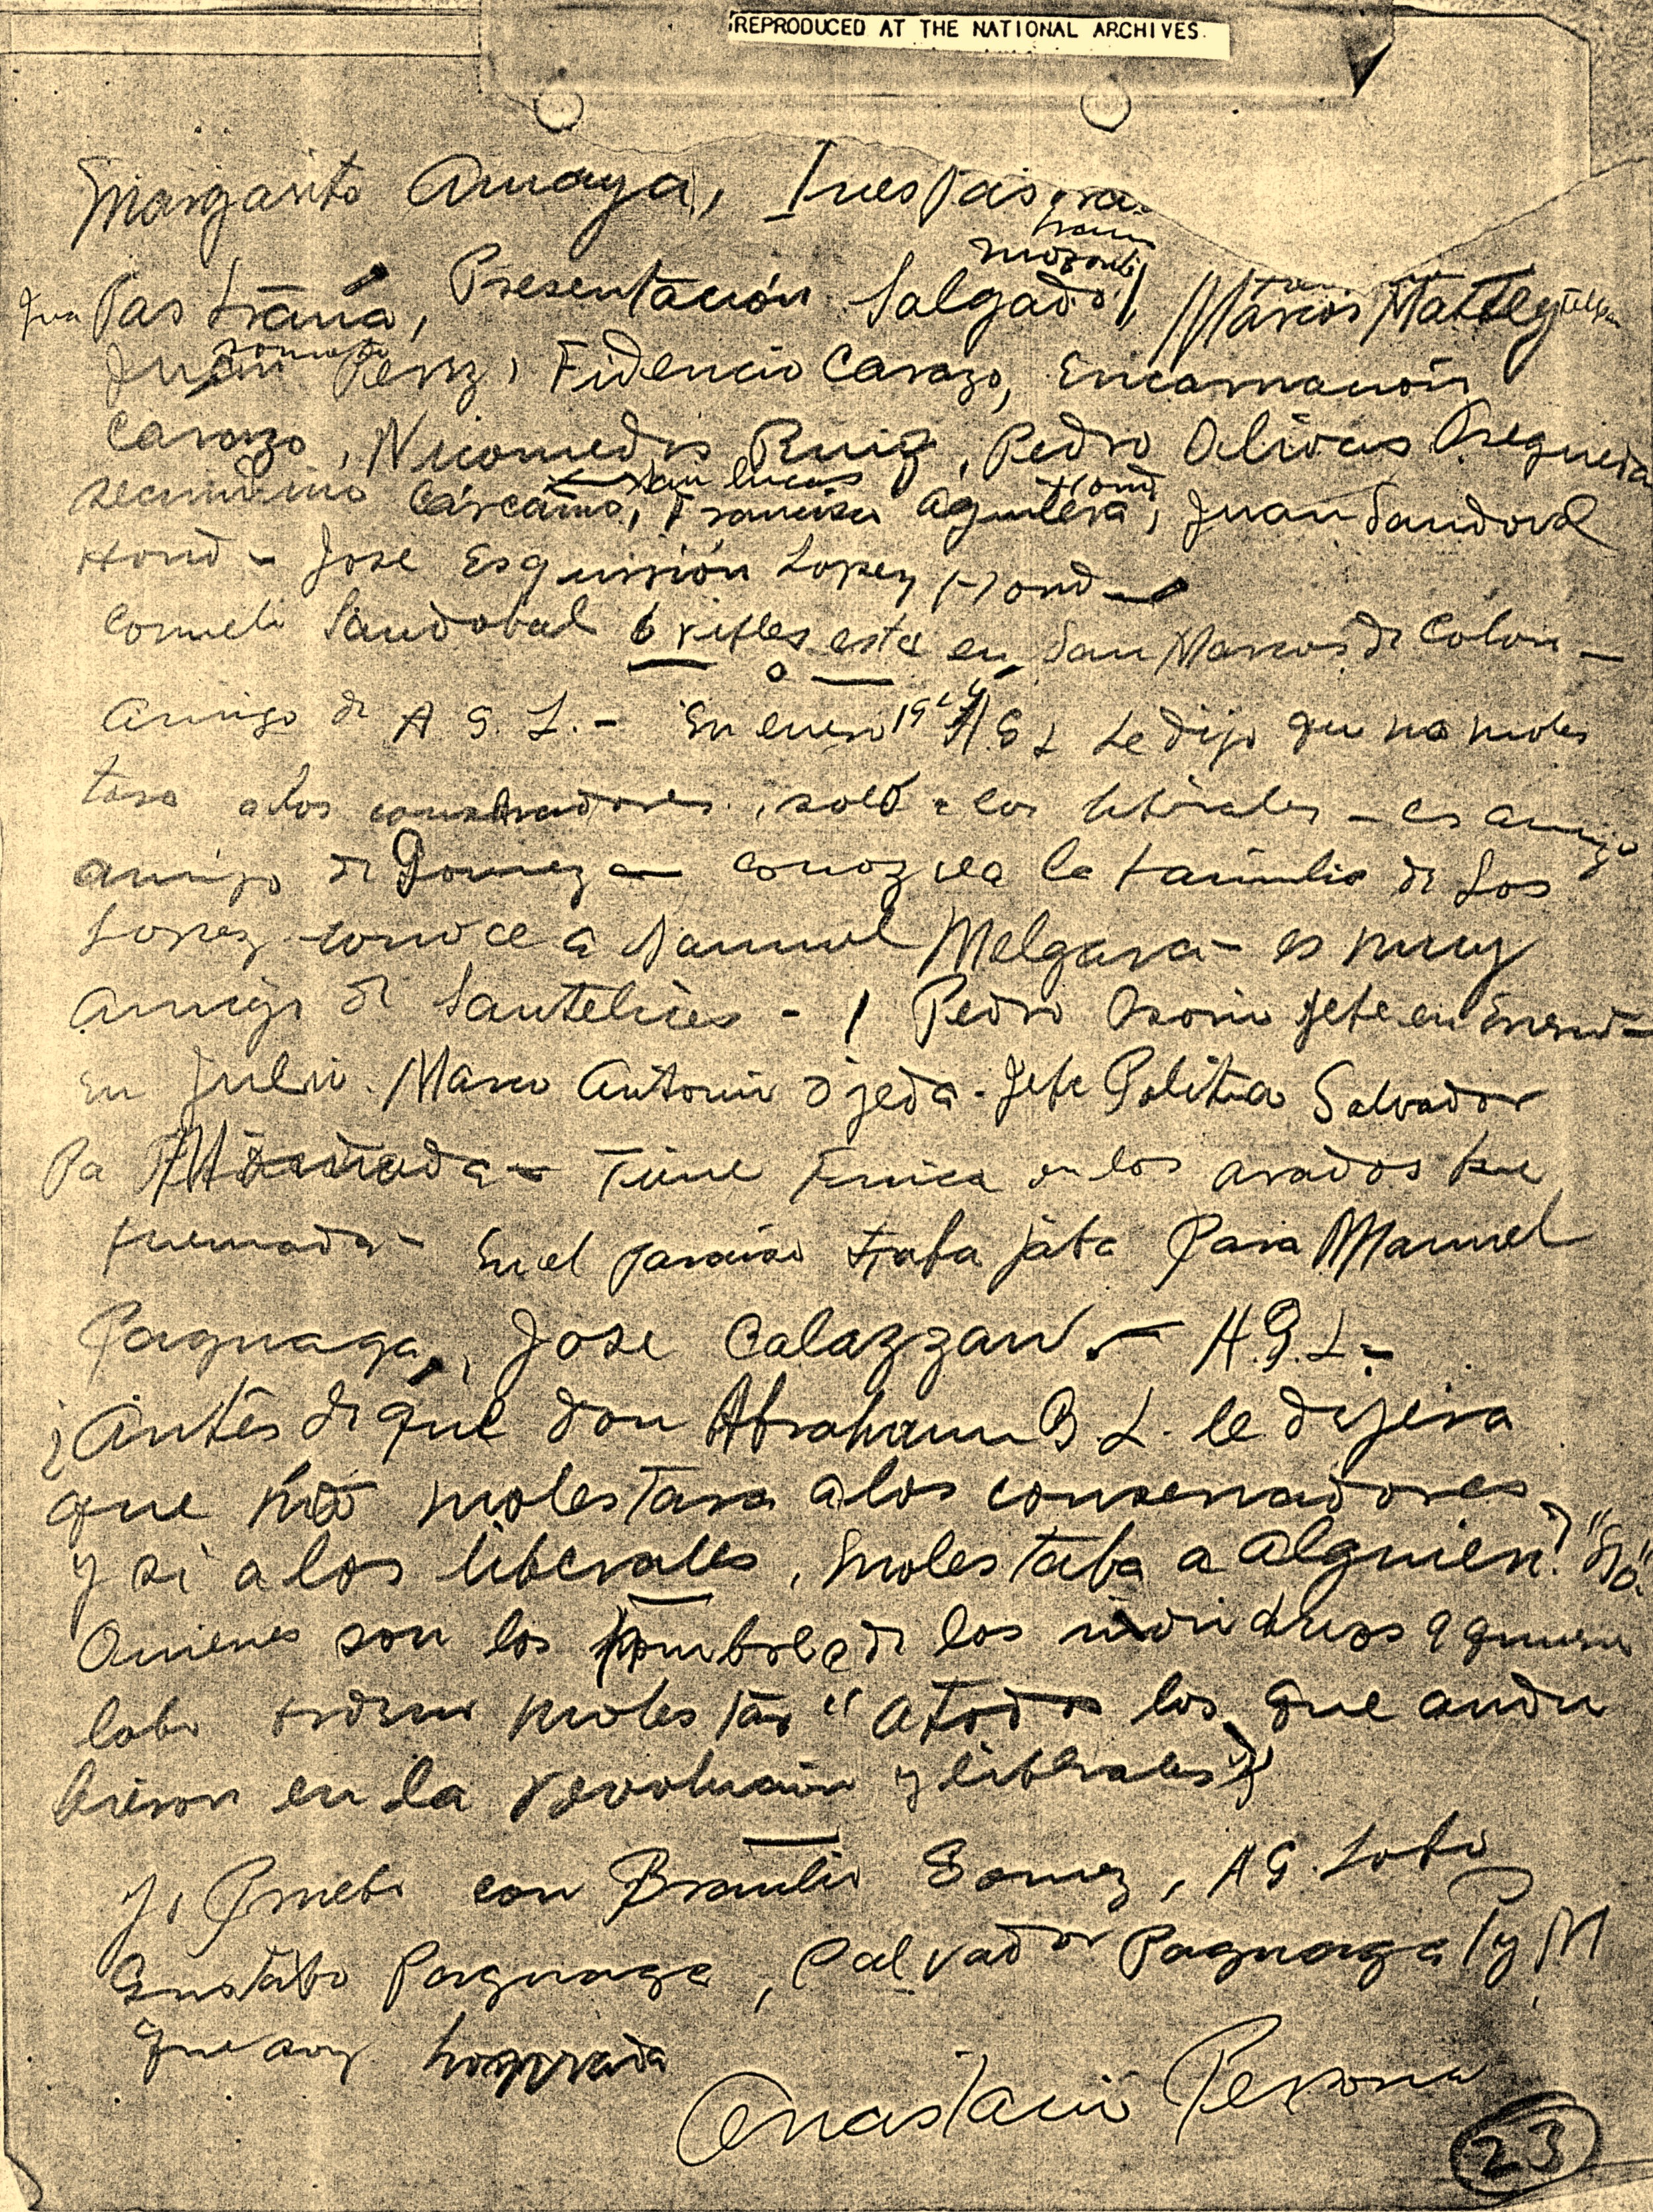 REPRODUCED AT THE NATIONAL ARCHIVES.
Margarito Amaya, Ines
Mozonte
Pastrana, Presentación Salgado, Marcos Matey
Somoto
Juan Perez, Fidencio Carazo, Encarnación
Carazo, Nicomedes Ruiz, Pedro Olivas Osegueda
San Lucas Hond
Secundino Cárcamo, Francisco Aguilera, Juan Sandoval
Hond - Jose López Hond -
Sandobal 6 rifles esta en San Marcos de Colon -
amigo de A. G. L. - En enero A G L Le dijo que no moles
tara a los conservadores, solo a los liberales - es amigo
amigo de Gomez - la familia de los
Lopez - conoce a Manuel Melgara - es muy
amigo de Santelices - Pedro Osorio Jefe en
en Julio. Marco Antonio Ojeda - Jefe Politica Salvador
Pa - Tiene finca en los arados
quemada - En el paraiso trabajaba Para Manuel
Paguaga, Jose Calazzan. - A. G. L -
¿Antes de que don Abraham G L. le dijera
que no molestara a los conservadores,
y si a los liberales, molestaba a alguien? "No"
Quienes son los nombres de los individuos q quiere
lobo molestar "a todos los que andu
bieron en la revolucion y liberales"
Y, Prueba con Braulio Gomez, A G. Lobo
Gustabo Paguaga, Salvador Paguaga P y M
que soy honrrada
Anastacio
23